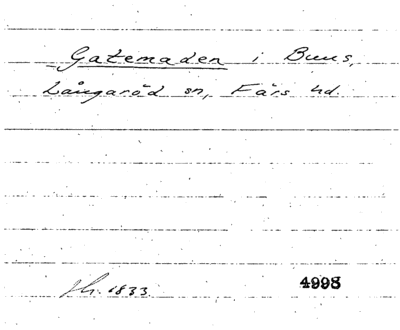 Gatemaden i Buus,
Långaröd sn, Färs hd.
1833 4998